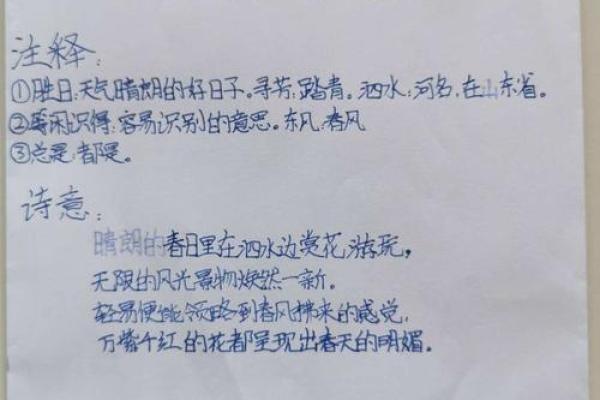 注释:
①胜日:天气晴朗的好日子。寻芳:踏青。泗水:河名,在山东省。
②等闲识得:容易识别的意思。东风:春风
③总是:都是。
诗意:
晴朗的春日里在泗水边赏花游玩,
无限的风光景物焕然一新。
轻易便能领略到春风拂来的感觉,
万紫千红的花都呈现出春天的明媚。